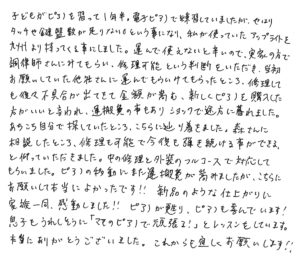 子どもがピアノを習って1年半。電子ピアノで練習していましたが、やはり
タッチや鍵盤数が足りない!!という事になり、私が使っていたアップライトを
九州より持ってくる事にしました。運んで使えないと辛いので、実家の方で
調律師さんにみてもらい、修理可能という判断をいただき、当初
お願いしていた他社さんに運んでもらいみてもらったところ、修理して
も後々不具合が出てきて金額が嵩む、新しくピアノを購入した
方がいいと言われ、運搬費の事もありショックで途方に暮れました。
あちこち自分で探していたところ、こちらに辿り着きました。森さんに
相談したところ、修理も可能で今後も弾き続ける事ができる、
と伺っていただきました。中の修理と外装のフルコースで対応して
もらいました。ピアノの移動にまた運搬費が嵩みましたが、こちらに
お願いして本当によかったです!! 新品のような仕上がりに
家族一同、感動しました!! ピアノが甦り、ピアノも喜んでいます!
息子もうれしそうに「ママのピアノで頑張る!」とレッスンをしています。
本当にありがとうございました。これからも宜しくお願いします!!